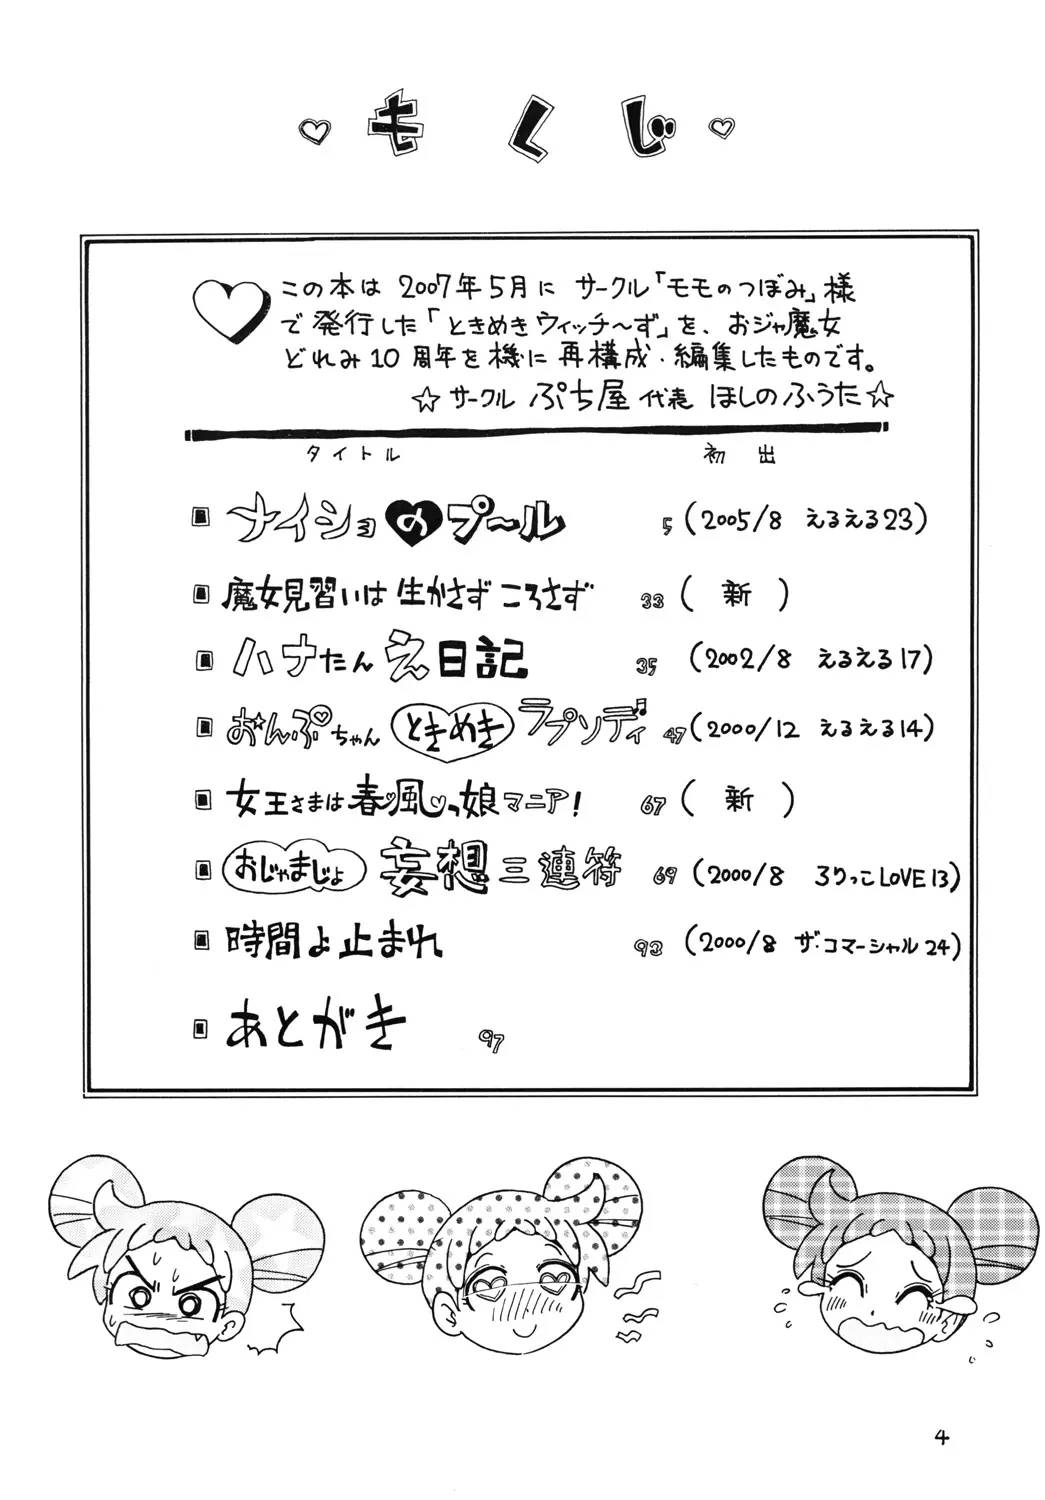 もくじ
この本は 2007年5月に サークル「モモのつぼみ」様
で発行した「ときめきウィッチ～ず」を、おジャ魔女
どれみ10周年を機に再構成・編集したものです。
☆サークル ぷち屋 代表 ほしのふうた☆
タイトル 初出
ナイショのプ～ル 5 (2005/8 えるえる23)
魔女見習いは生かさずころさず 33 ( 新 )
ハナたんえ日記 35 (2002/8 えるえる17)
おんぷちゃんときめきラプソディ 47 (2000/12 えるえる14)
女王さまは春風っ娘マニア! 67 ( 新 )
おじゃまじょ妄想三連符 69 (2000/8 ろりっこLOVE13)
時間よ止まれ 93 (2000/8 ザ・コマーシャル24)
あとがき 97
4